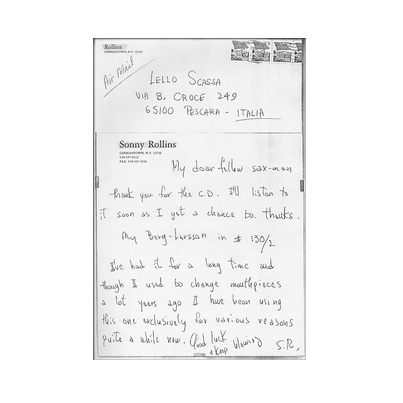 Rollins
GERMANTOWN, N.Y. 12526
Air Mail
LELLO SCASSA
VIA B. CROCE 249
65100 PESCARA - ITALIA
Sonny Rollins
GERMANTOWN, N.Y. 12526
My dear fellow sax-man
thank you for the C.D. I'll listen to
it soon as I get a chance to. thanks.
My Berg-Larsson is # 130/2
I've had it for a long time and
though I used to change mouthpieces
a lot years ago I have been using
this one exclusively for various reasons
quite a while now. Good luck
& keep blowing S.R.,